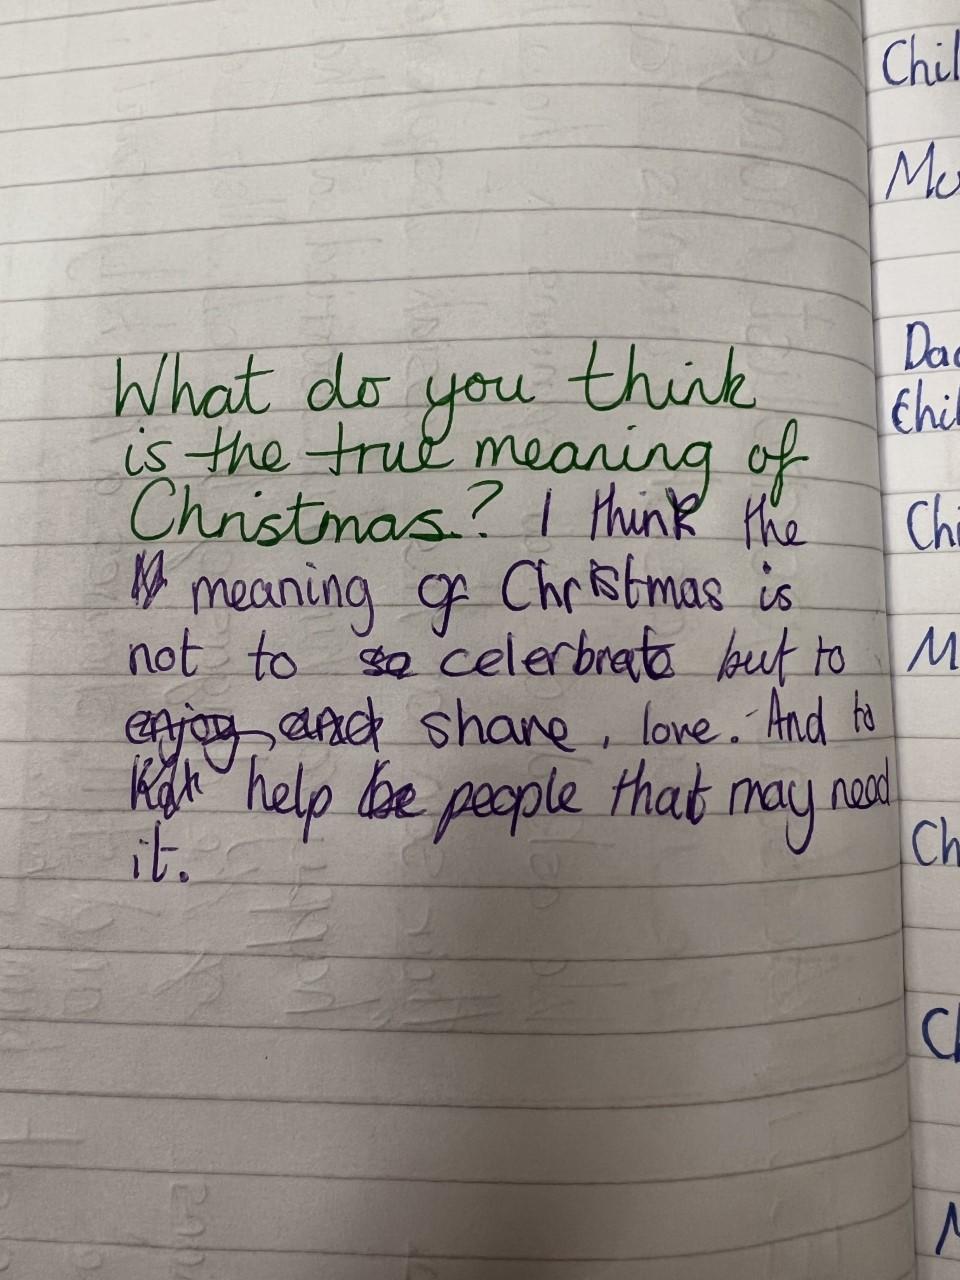 What do you think
is the true meaning of
Christmas? I think the
meaning of Christmas is
not to so celerbrate but to
enjoy, and share, love. And to
help be people that may need
it.
Chil
Mu
Dad
Chil
Chi
M
Ch
Ch
M